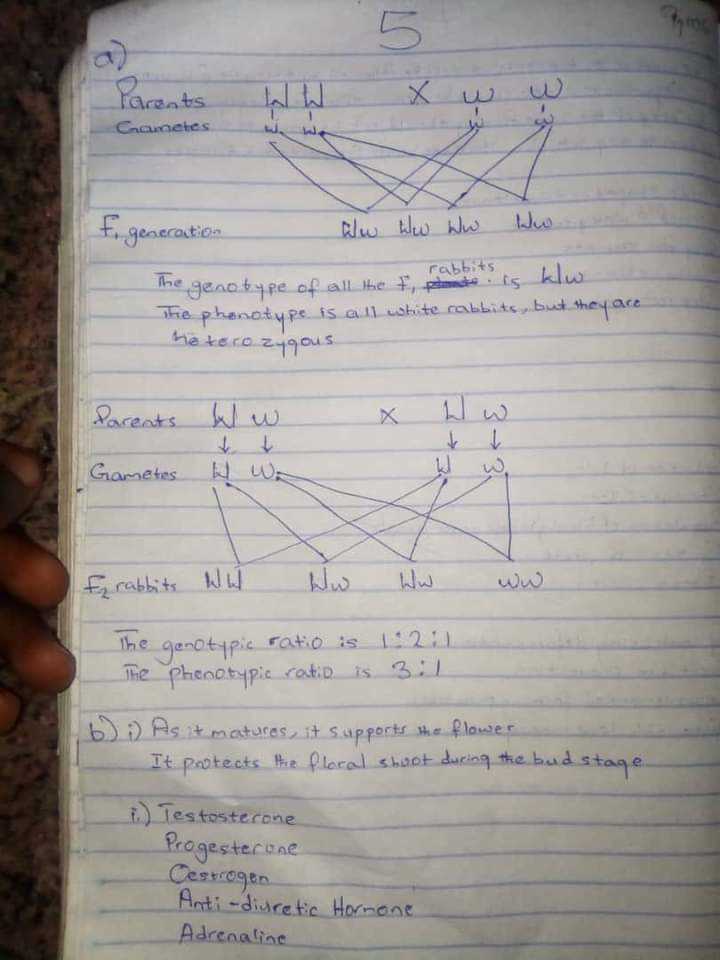 5
a)
Parents W W X w w
Gametes W W w w
F1 generation Ww Ww Ww Ww
The genotype of all the F1 rabbits is Ww
The phenotype is all white rabbits, but they are
heterozygous
Parents W w X W w
Gametes W w W w
F2 rabbits WW Ww Ww ww
The genotypic ratio is 1:2:1
The phenotypic ratio is 3:1
b) i) As it matures, it supports the flower
It protects the floral shoot during the bud stage
i.) Testosterone
Progesterone
Oestrogen
Anti-diuretic Hormone
Adrenaline